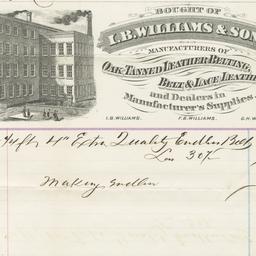 BOUGHT OF
I.B. WILLIAMS & SON
MANUFACTURERS OF
OAK TANNED LEATHER BELTING,
BELT & LACE LEATHER
and Dealers in
Manufacturer's Supplies
I.B. WILLIAMS. F.E. WILLIAMS. G.H.W
ft 4" Extra Quality Endless Belt
Less 30%
Making Endless